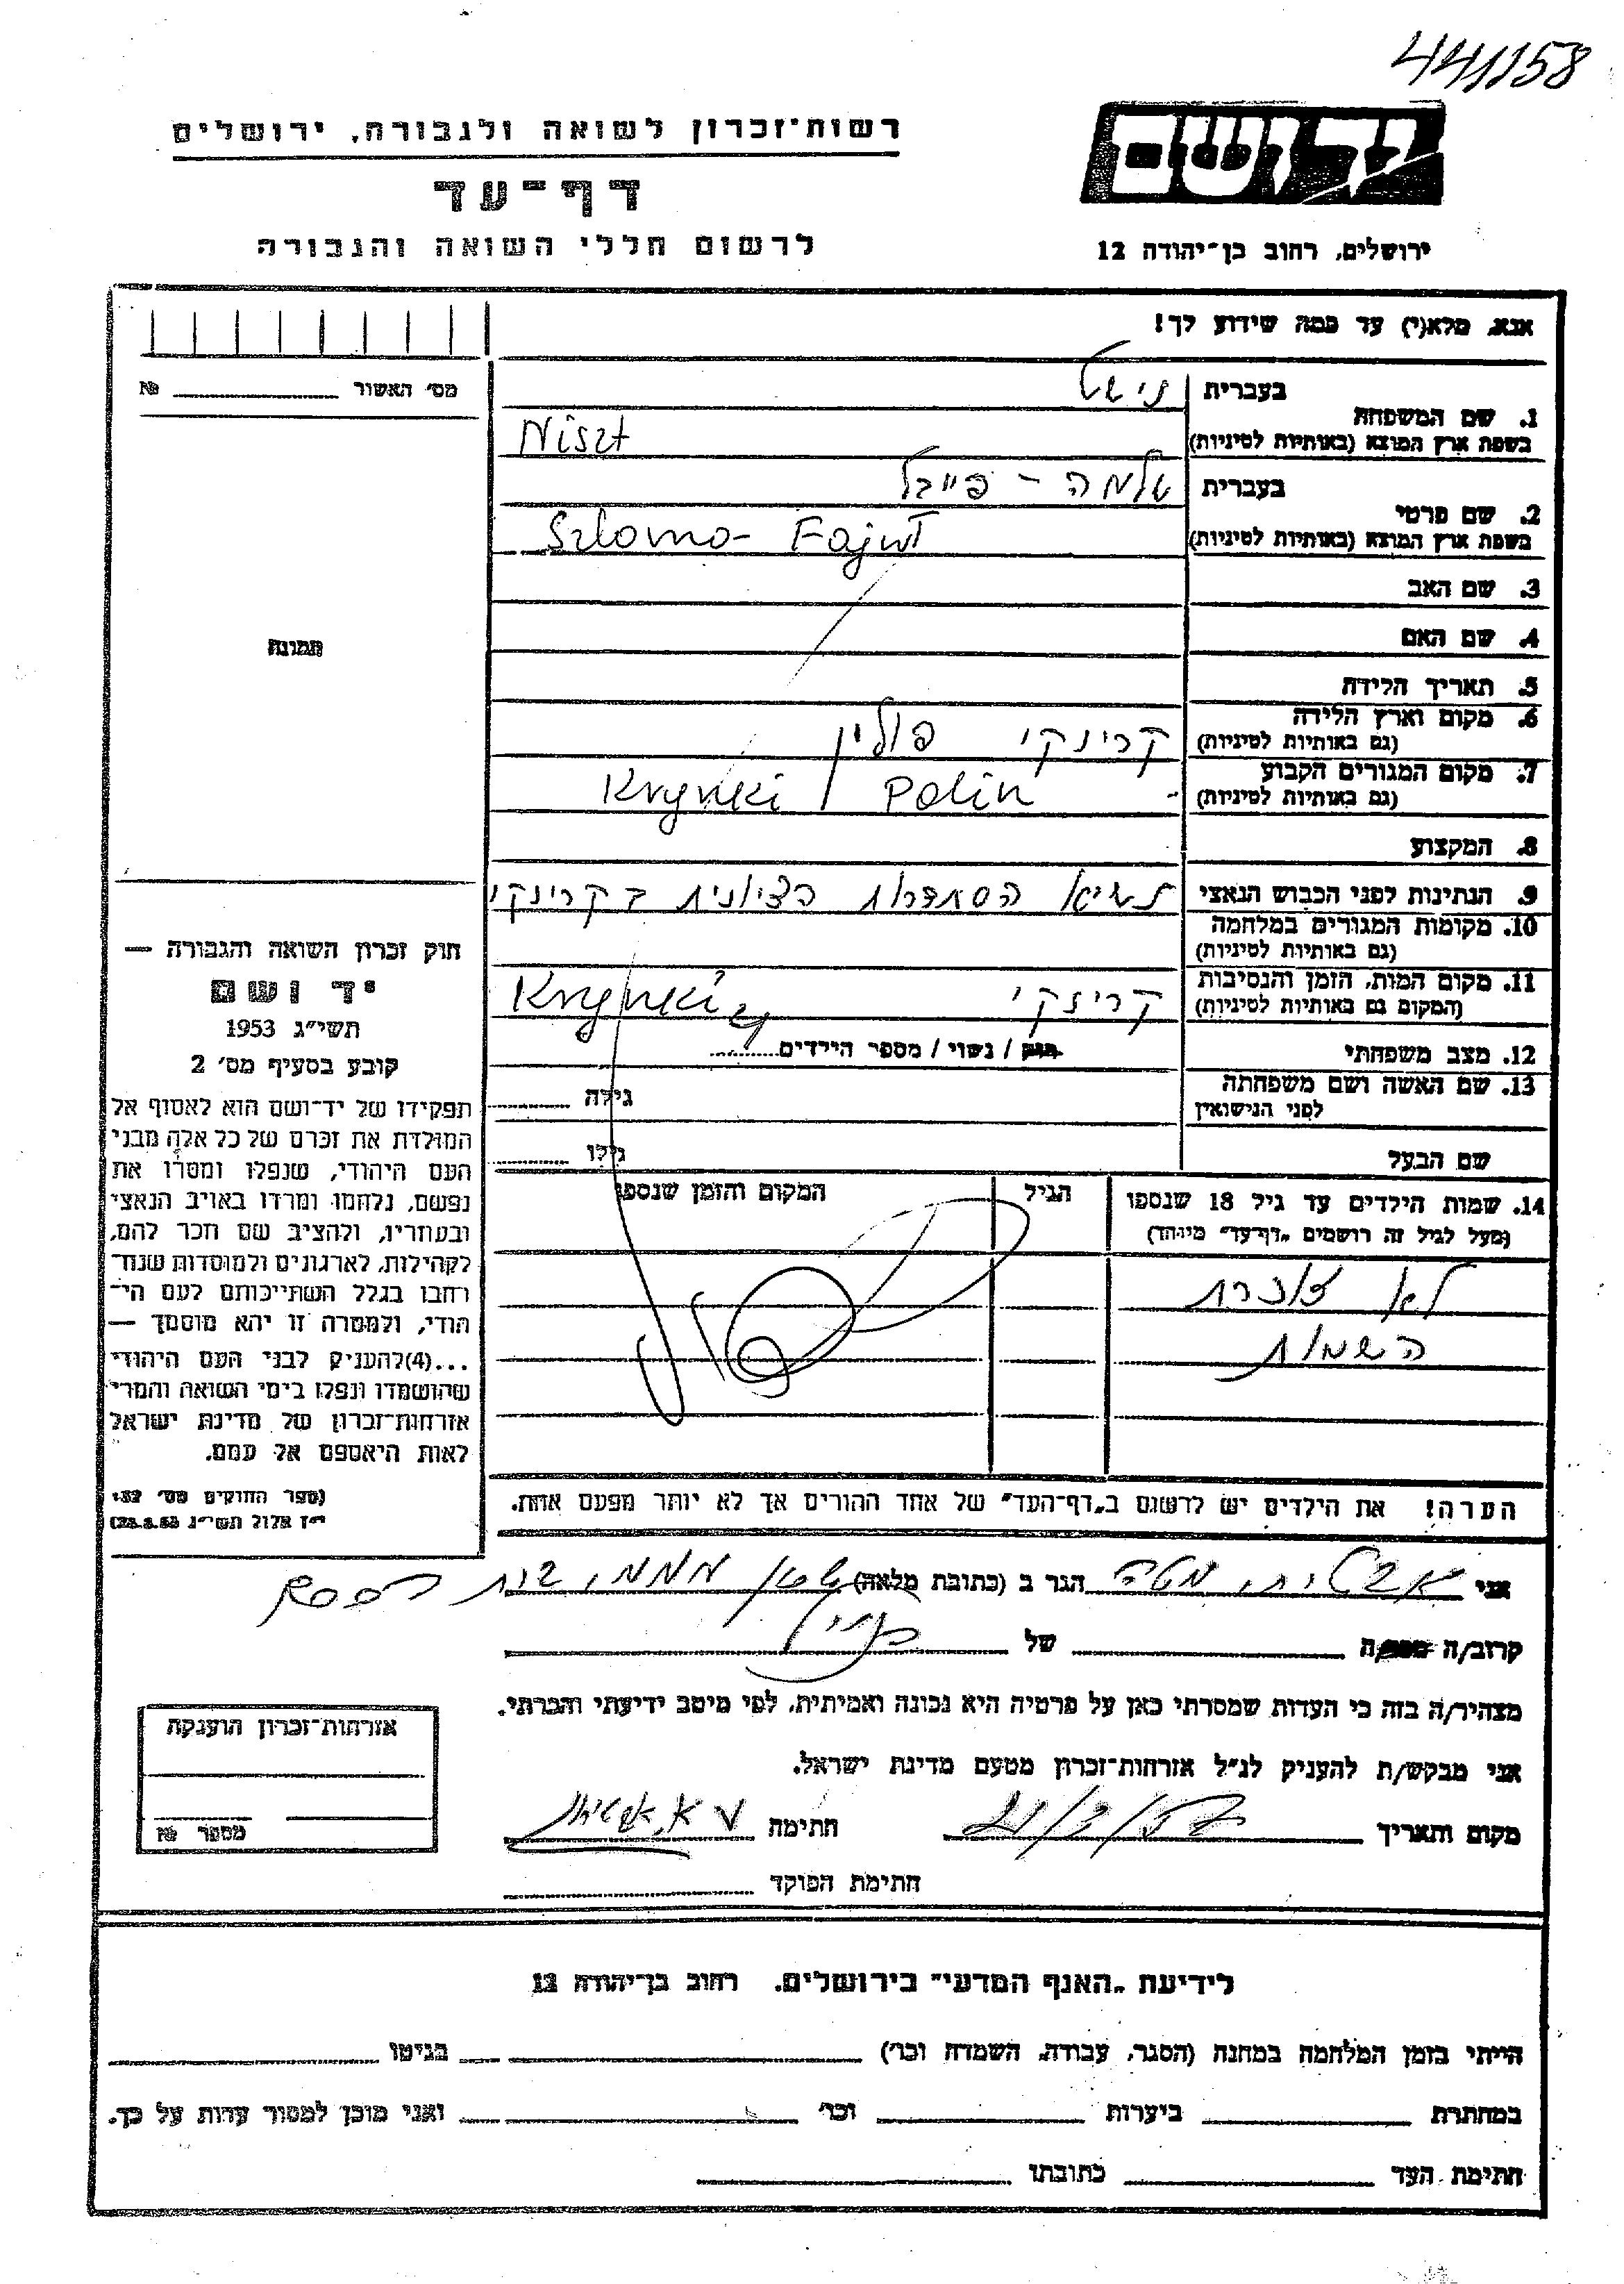 441158
רשות־זכרון לשואה ולגבורה, ירושלים
דף־עד
לרשום חללי השואה והגבורה
יד ושם
ירושלים, רחוב בן־יהודה 12
אנא, מלא(י) עד כמה שידוע לך!
מס' האשור №
תמונה
1. שם המשפחה בעברית
בשפת ארץ המוצא (באותיות לטיניות) Niszt
2. שם פרטי בעברית שלמה - פייבל
בשפת ארץ המוצא (באותיות לטיניות) Szlomo-
3. שם האב
4. שם האם
5. תאריך הלידה
6. מקום וארץ הלידה קרינקי פולין
(גם באותיות לטיניות)
7. מקום המגורים הקבוע Krynki Polin
(גם באותיות לטיניות)
8. המקצוע
9. הנתינות לפני הכבוש הנאצי נשיא הסתדרות הציונית בקרינקי
10. מקומות המגורים במלחמה
(גם באותיות לטיניות)
11. מקום המות, הזמן והנסיבות קרינקי Krynki
(המקום גם באותיות לטיניות)
12. מצב משפחתי רווק / נשוי / מספר הילדים
13. שם האשה ושם משפחתה
לפני הנישואין גילה
שם הבעל גילו
14. שמות הילדים עד גיל 18 שנספו הגיל המקום והזמן שנספו
(מעל לגיל זה רושמים „דף־עד" מיוחד)
לא זוכרת
השמות
הערה! את הילדים יש לרשום ב„דף־העד" של אחד ההורים אך לא יותר מפעם אחת.
חוק זכרון השואה והגבורה —
יד ושם
תשי״ג 1953
קובע בסעיף מס' 2
תפקידו של יד־ושם הוא לאסוף אל
המולדת את זכרם של כל אלה מבני
העם היהודי, שנפלו ומסרו את
נפשם, נלחמו ומרדו באויב הנאצי
ובעוזריו, ולהציב שם וזכר להם,
לקהילות, לארגונים ולמוסדות שנח־
רבו בגלל השתייכותם לעם הי־
הודי, ולמטרה זו יהא מוסמך —
...(4)להעניק לבני העם היהודי
שהושמדו ונפלו בימי השואה והמרי
אזרחות־זכרון של מדינת ישראל
לאות היאספם אל עמם.
(ספר החוקים מס' 132,
י״ז אלול תשי״ג 28.8.53)
אני הגר ב (כתובת מלאה)
קרוב/ה של
מצהיר/ה בזה כי העדות שמסרתי כאן על פרטיה היא נכונה ואמיתית, לפי מיטב ידיעתי והכרתי.
אני מבקש/ת להעניק לנ״ל אזרחות־זכרון מטעם מדינת ישראל.
מקום ותאריך חתימה
חתימת הפוקד
אזרחות־זכרון הוענקה
מספר №
לידיעת „האגף המדעי" בירושלים. רחוב בן־יהודה 12
הייתי בזמן המלחמה במחנה (הסגר, עבודה, השמדה וכו') בגיטו
במחתרת ביערות וכו' ואני מוכן למסור עדות על כך.
חתימת העד כתובתו